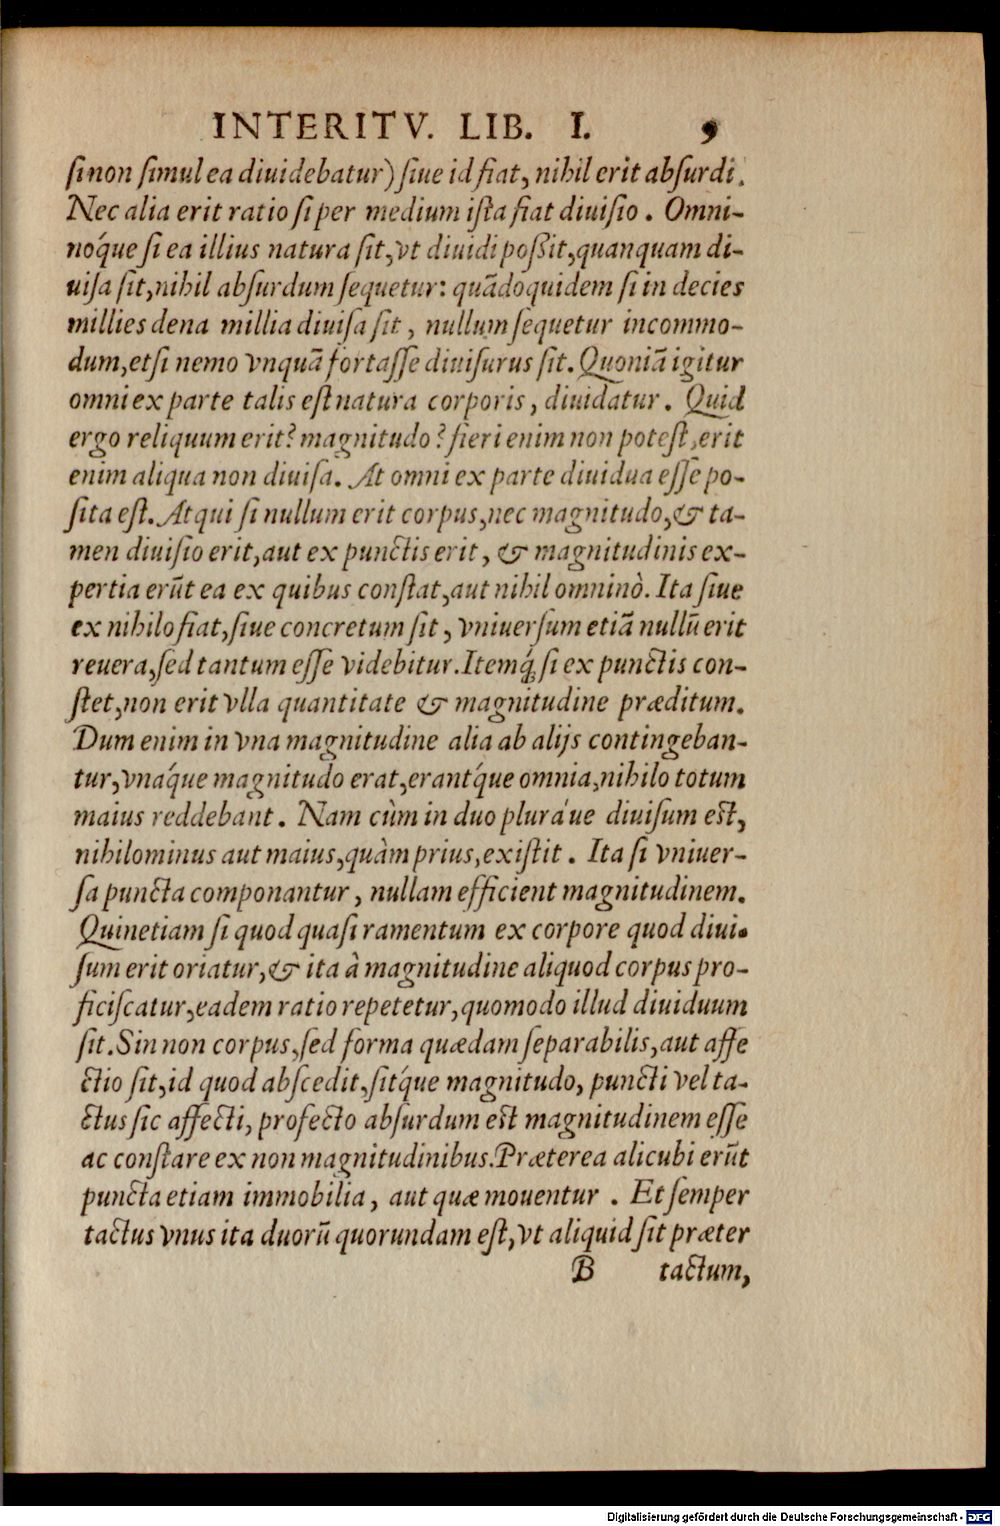 INTERITV. LIB. I. 9
sinon simul ea diuidebatur) siue id fiat, nihil erit absurdi.
Nec alia erit ratio si per medium ista fiat diuisio. Omni-
nóque si ea illius natura sit, vt diuidi poßit, quanquam di-
uisa sit, nihil absurdum sequetur: quãdoquidem si in decies
millies dena millia diuisa sit, nullum sequetur incommo-
dum, etsi nemo vnquã fortasse diuisurus sit. Quoniã igitur
omni ex parte talis est natura corporis, diuidatur. Quid
ergo reliquum erit? magnitudo? fieri enim non potest, erit
enim aliqua non diuisa. At omni ex parte diuidua esse po-
sita est. Atqui si nullum erit corpus, nec magnitudo, & ta-
men diuisio erit, aut ex punctis erit, & magnitudinis ex-
pertia erũt ea ex quibus constat, aut nihil omninò. Ita siue
ex nihilo fiat, siue concretum sit, vniuersum etiã nullũ erit
reuera, sed tantum esse videbitur. Itemq́; si ex punctis con-
stet, non erit vlla quantitate & magnitudine præditum.
Dum enim in vna magnitudine alia ab alijs contingeban-
tur, vnaq́ue magnitudo erat, erantq́ue omnia, nihilo totum
maius reddebant. Nam cùm in duo pluráue diuisum est,
nihilominus aut maius, quàm prius, existit. Ita si vniuer-
sa puncta componantur, nullam efficient magnitudinem.
Quinetiam si quod quasi ramentum ex corpore quod diui-
sum erit oriatur, & ita à magnitudine aliquod corpus pro-
ficiscatur, eadem ratio repetetur, quomodo illud diuiduum
sit. Sin non corpus, sed forma quædam separabilis, aut affe
ctio sit, id quod abscedit, sitq́ue magnitudo, puncti vel ta-
ctus sic affecti, profecto absurdum est magnitudinem esse
ac constare ex non magnitudinibus. Præterea alicubi erũt
puncta etiam immobilia, aut quæ mouentur. Et semper
tactus vnus ita duorũ quorundam est, vt aliquid sit præter
B tactum,
Digitalisierung gefördert durch die Deutsche Forschungsgemeinschaft - DFG